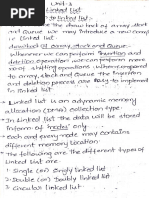 Unit-3
Linked list
to linked list:-
the draw back of array, stack
and Queue we may introduce a new comp
i.e linked list.
drawback of array, stack and Queue:-
Whenever we can perform Insertion and
deletion operation will can perform more
no of shifting operations when compared
to array, stack and Queue the Insertion
and deletion process are easy to implement
in linked list
• Linked list is a dynamic memory
allocation (DMA) collection type.
• In Linked list the data will be stored
inform of "nodes" only.
• Each and every node may contains
different memory location.
• The following are the different types of
Linked list are
1. Single (or) Singly linked list
2. Double (or) Doubly linked list
3. Circulas linked list